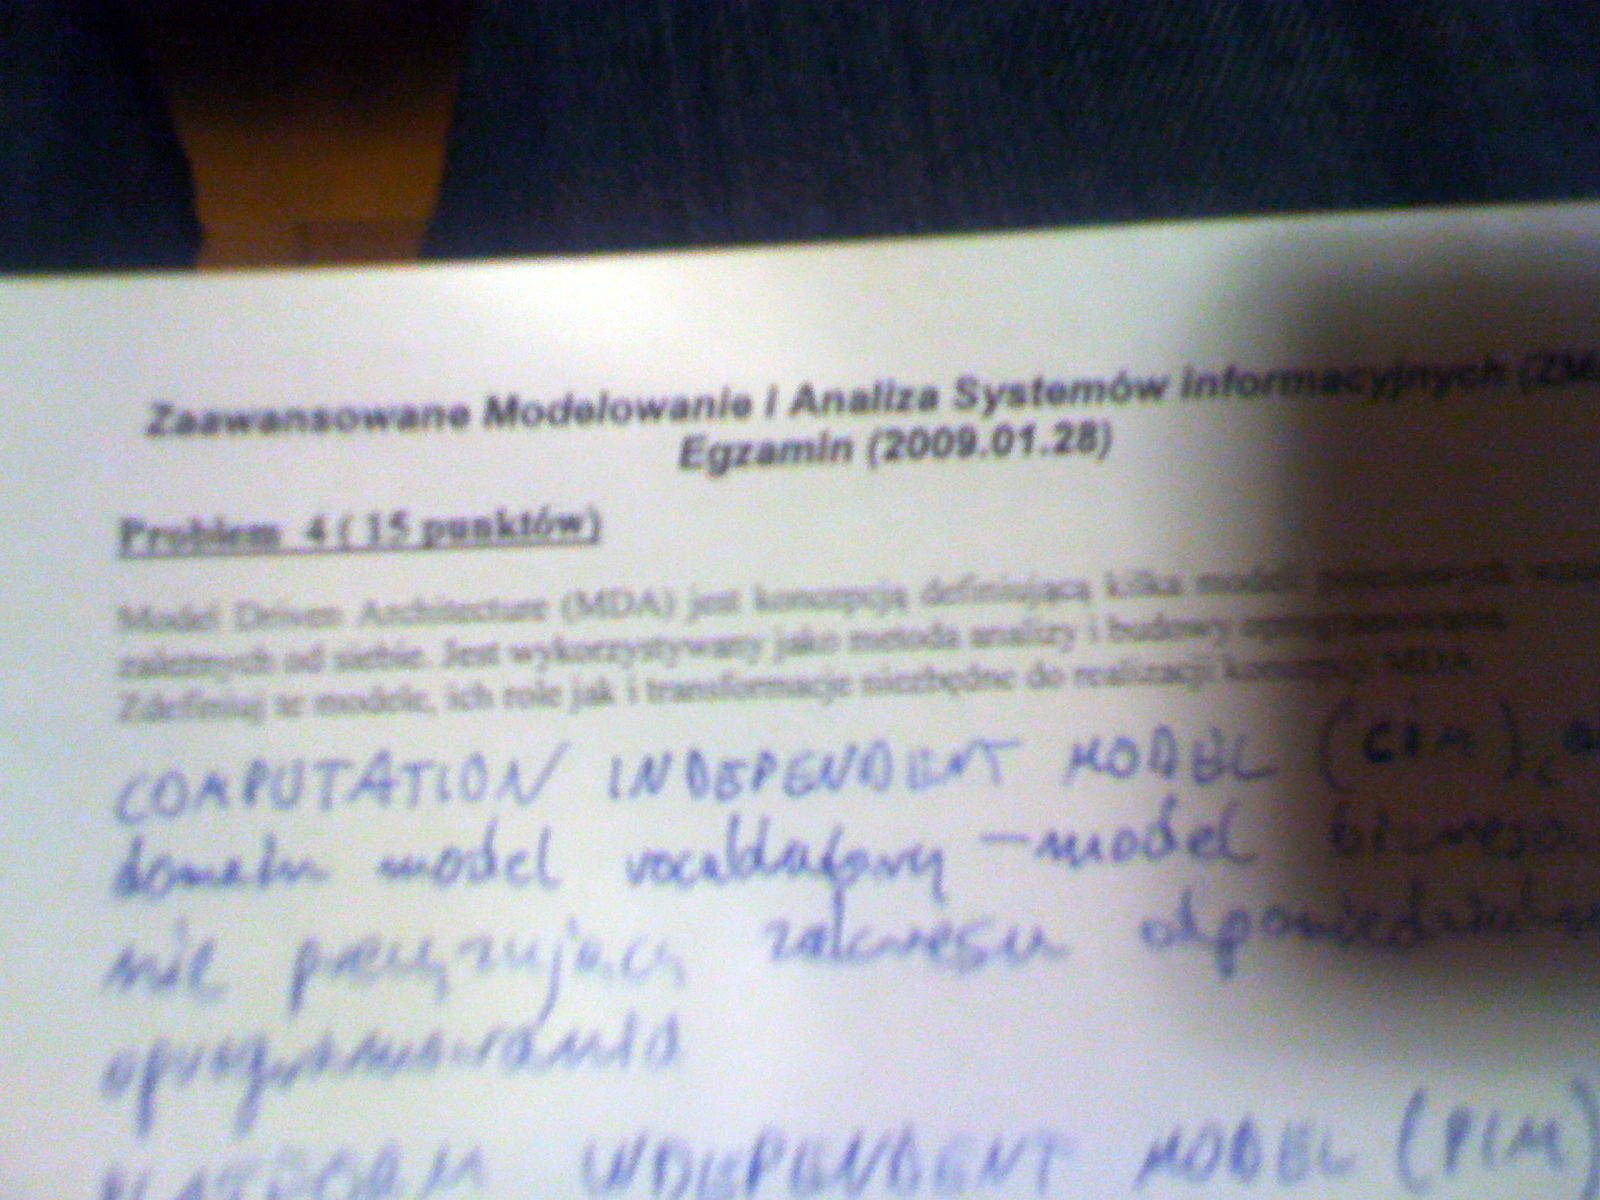 Zaawansowane Modelowanie i Analiza Systemów Informacyjnych (ZM
Egzamin (2009.01.28)
Problem 4 ( 15 punktów)
Model Driven Architecture (MDA) jest koncepcją definiującą kilka modeli
zależnych od siebie. Jest wykorzystywany jako metoda analizy i budowy oprogramowania.
Zdefiniuj te modele, ich role jak i transformacje niezbędne do realizacji koncepcji MDA
COMPUTATION INDEPENDENT MODEL (CIM),
domain model vocabulary – model
nie precyzujący zakresu
oprogramowania
PLATFORM INDEPENDENT MODEL (PIM)